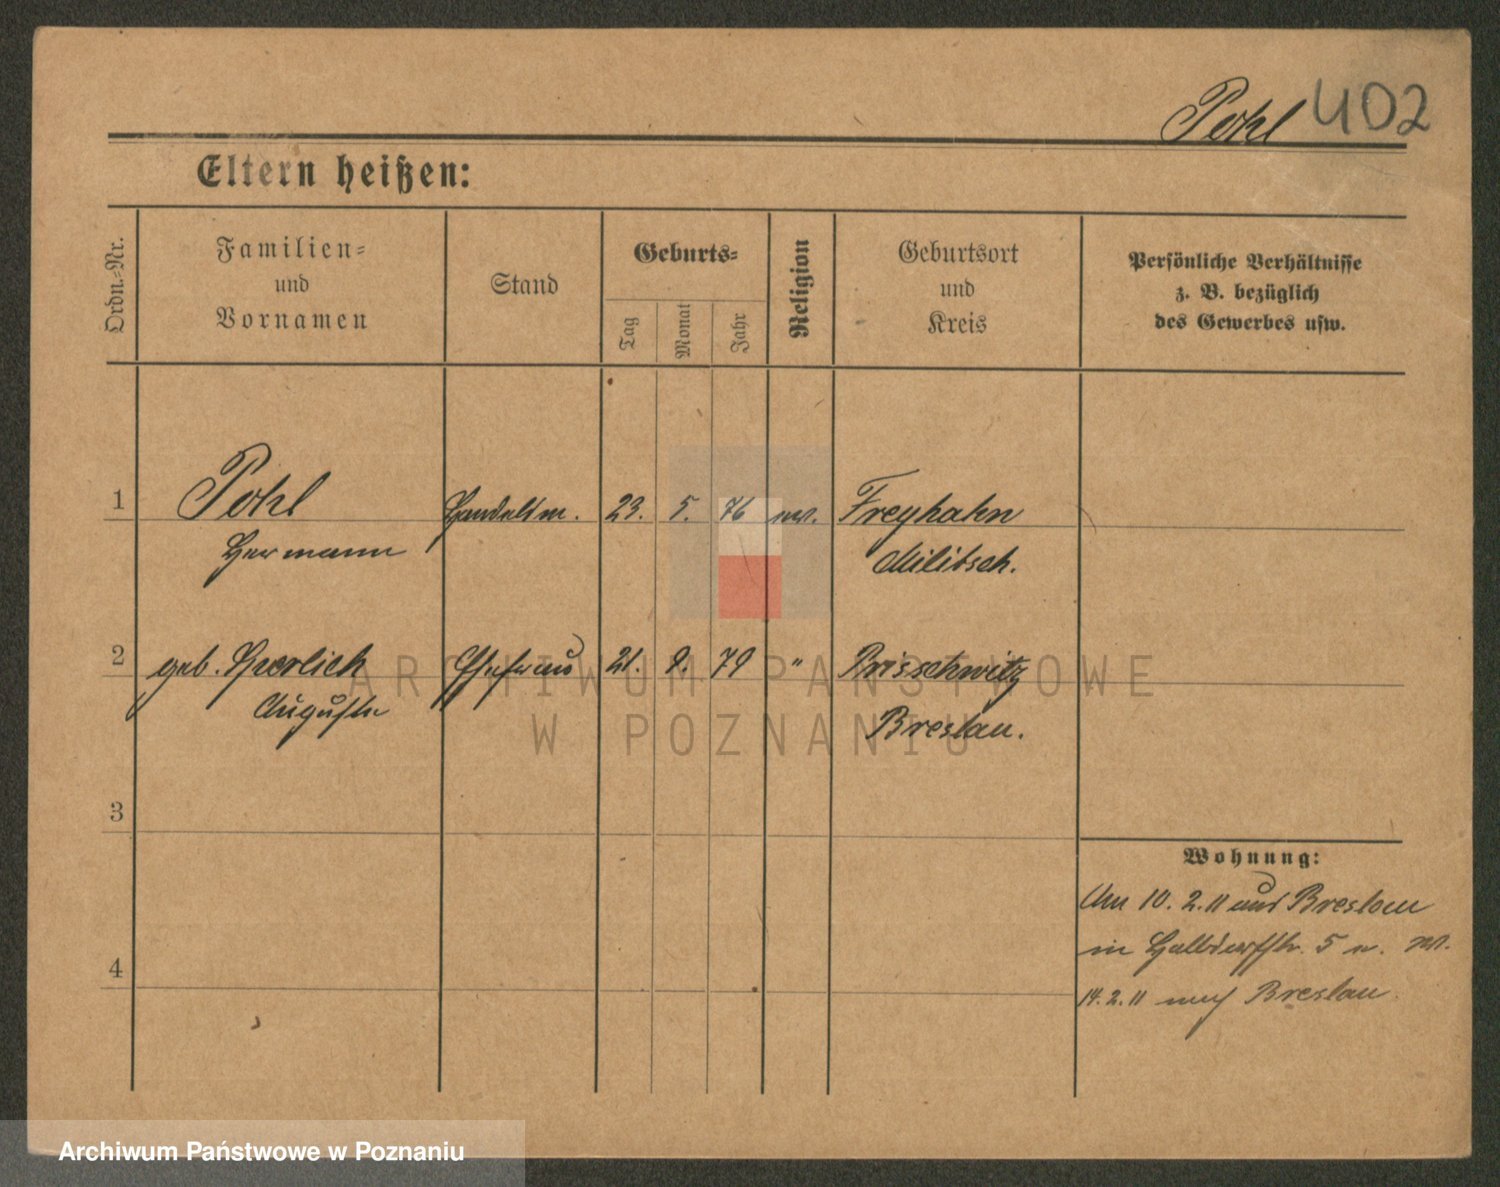 Pohl 402
Eltern heißen:
Ordn.-Nr.
Familien-
und
Vornamen
Stand
Geburts-
Tag
Monat
Jahr
Religion
Geburtsort
und
Kreis
Persönliche Verhältnisse
z. B. bezüglich
des Gewerbes usw.
1 Pohl Handelsm. 23. 5. 76 ev. Freyhahn
Hermann Militsch.
2 geb. Ehefrau 21. 9. 79 " Prisschwitz
Auguste Breslau.
3
4
Wohnung:
Am 10. 2. 11 aus Breslau
in Halbdorfstr. 5 u.
14. 2. 11 nach Breslau.
ARCHIWUM PAŃSTWOWE
W POZNANIU
Archiwum Państwowe w Poznaniu